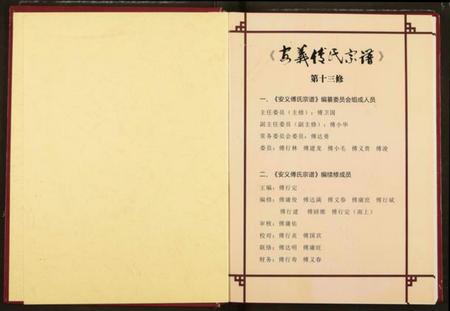 《安義傅氏宗谱》
第十三修
一、《安义傅氏宗谱》编纂委员会组成人员
主任委员（主修）：傅卫国
副主任委员（副主修）：傅小华
常务委员会委员：傅达勇
委员：傅行林 傅建龙 傅小毛 傅义贵 傅凌
二、《安义傅氏宗谱》编续修成员
主编：傅行定
编修：傅庸俊 傅达满 傅义春 傅庸宫 傅行斌
傅行建 傅行定（南上）
审核：傅庸佑
校对：傅行炎 傅国滨
联络：傅达明 傅庸旺
财务：傅行寿 傅义春